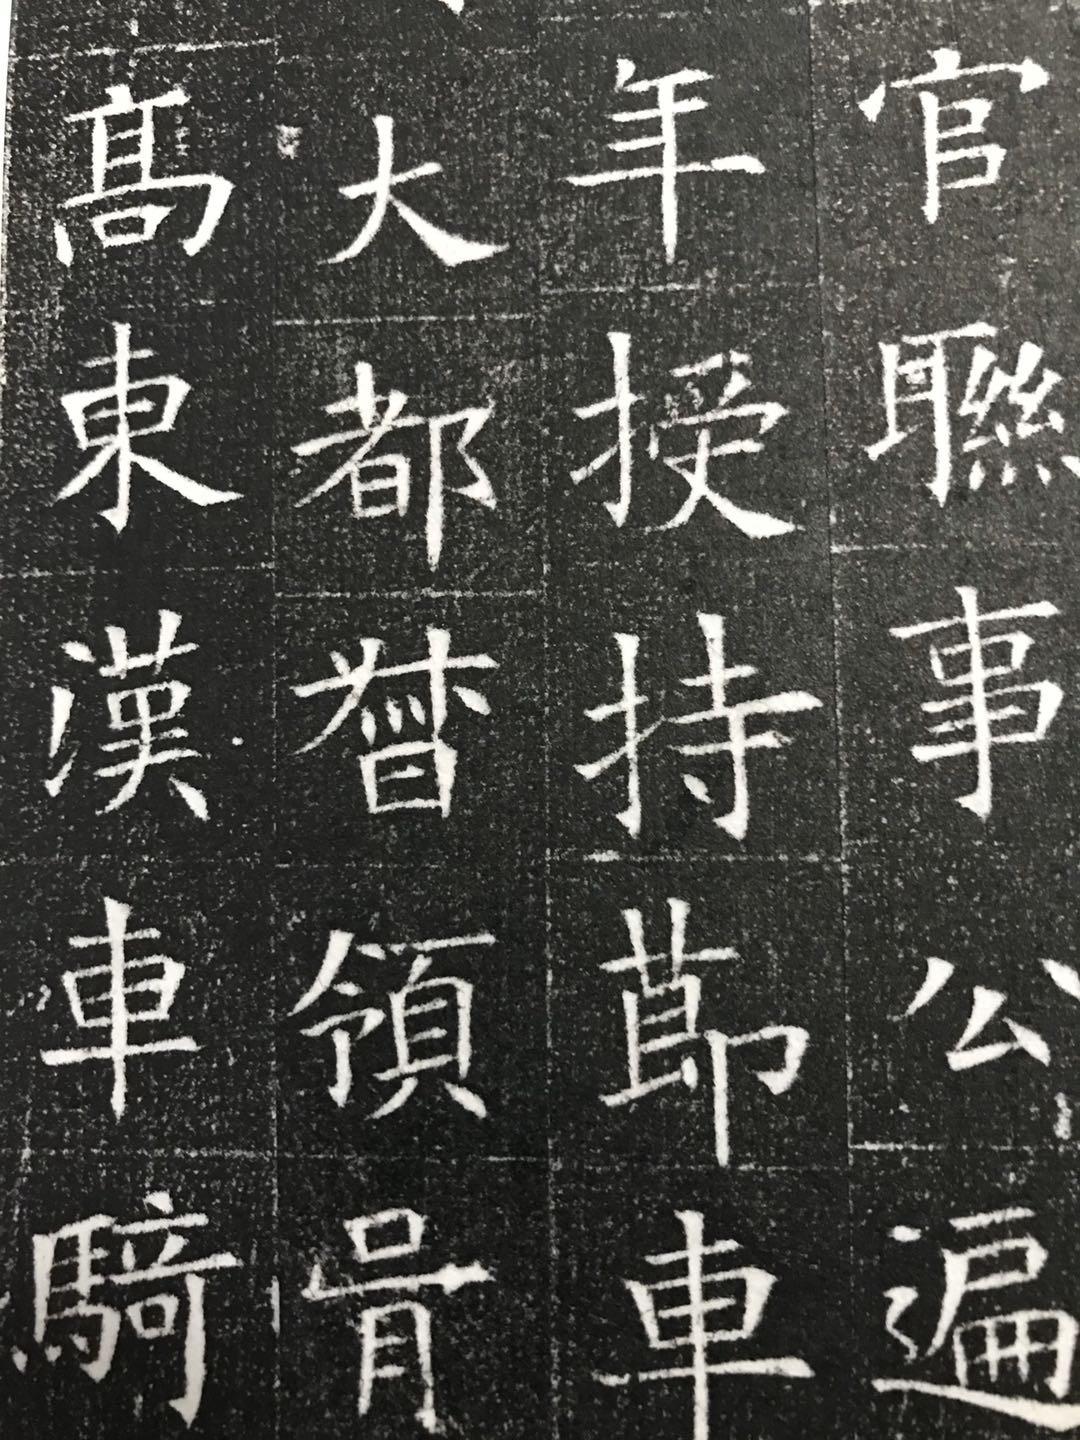 官聯事公遍
年授持莭車
大都督領
髙東漢車騎